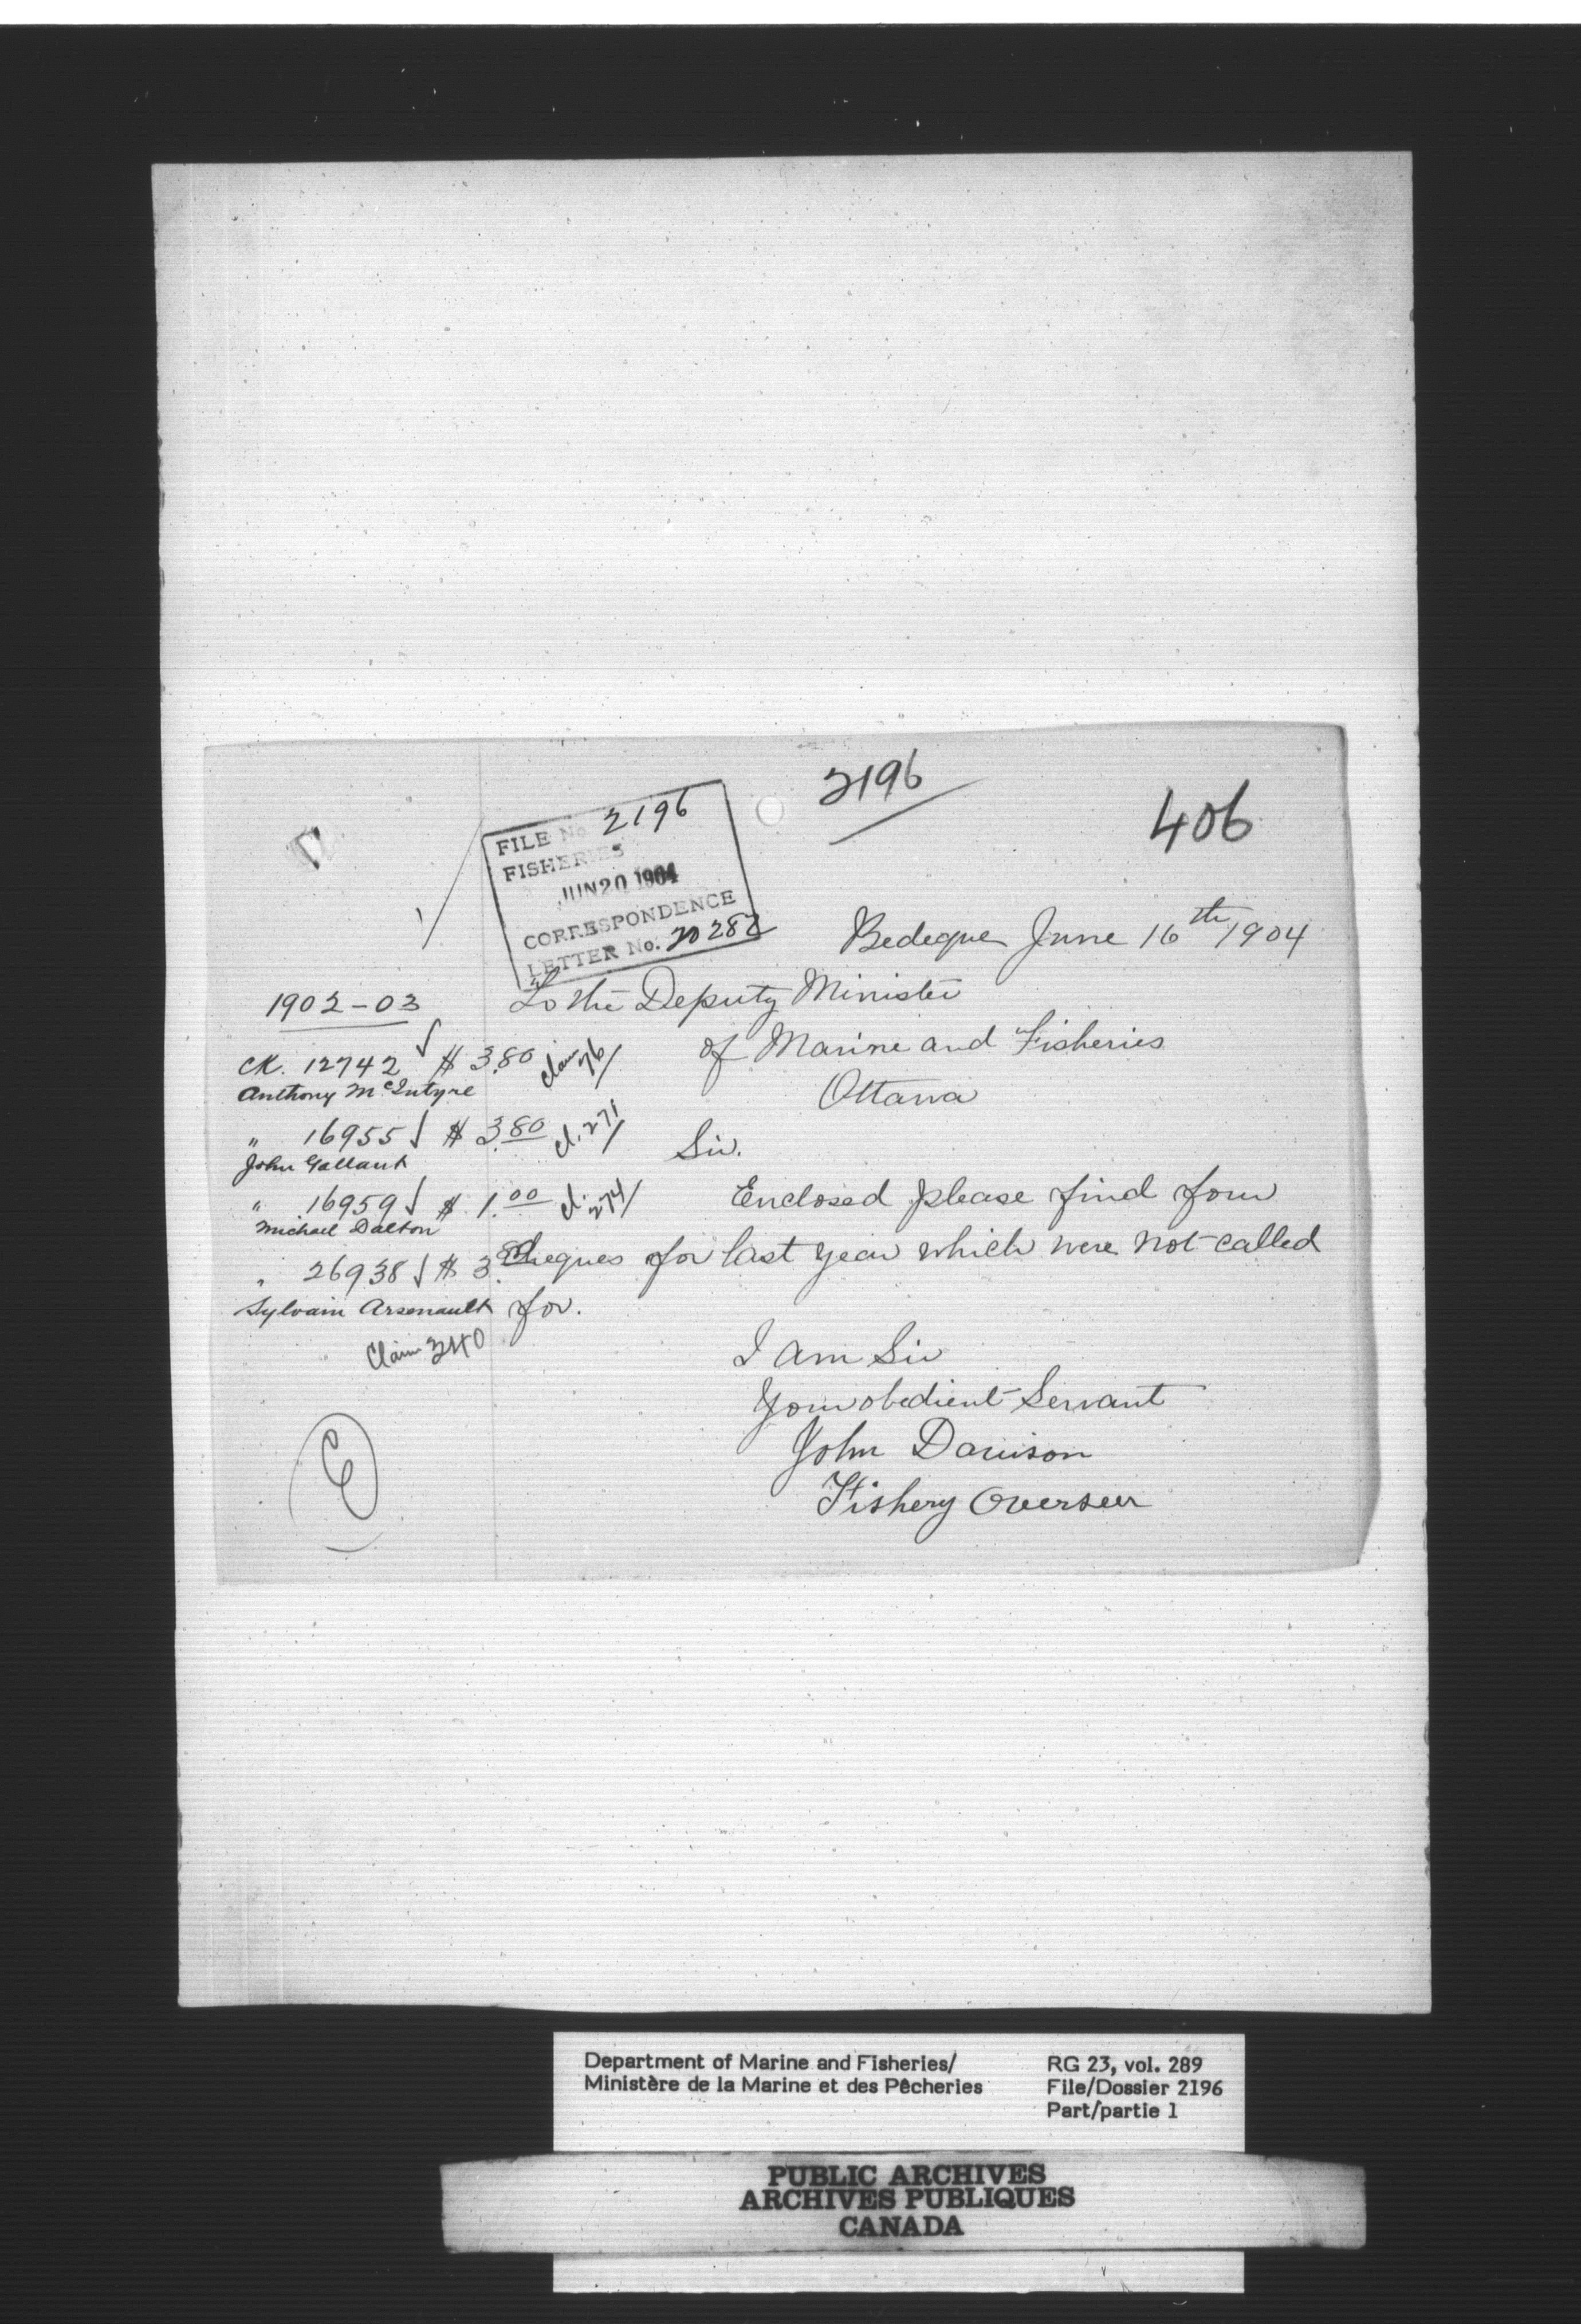 2196
406
FILE No 2196
FISHERIES
JUN 20 1904
CORRESPONDENCE
LETTER No. 20282
Bedeque June 16th 1904
To the Deputy Minister
of Marine and Fisheries
Ottawa
Sir.
Enclosed please find four
cheques for last year which were not called
for.
I am Sir
Your obedient Servant
John Davison
Fishery Overseer
1902-03
CK. 12742 ✓ $ 3.80 Claim 76/
Anthony McIntyre
" 16955 ✓ $ 3.80 Cl. 271/
John Gallant
" 16959 ✓ $ 1.00 Cl. 274/
Michael Dalton
" 26938 ✓ $ 3.80
Sylvain Arsenault
Claim 340
E
Department of Marine and Fisheries/
Ministère de la Marine et des Pêcheries
RG 23, vol. 289
File/Dossier 2196
Part/partie 1
PUBLIC ARCHIVES
ARCHIVES PUBLIQUES
CANADA